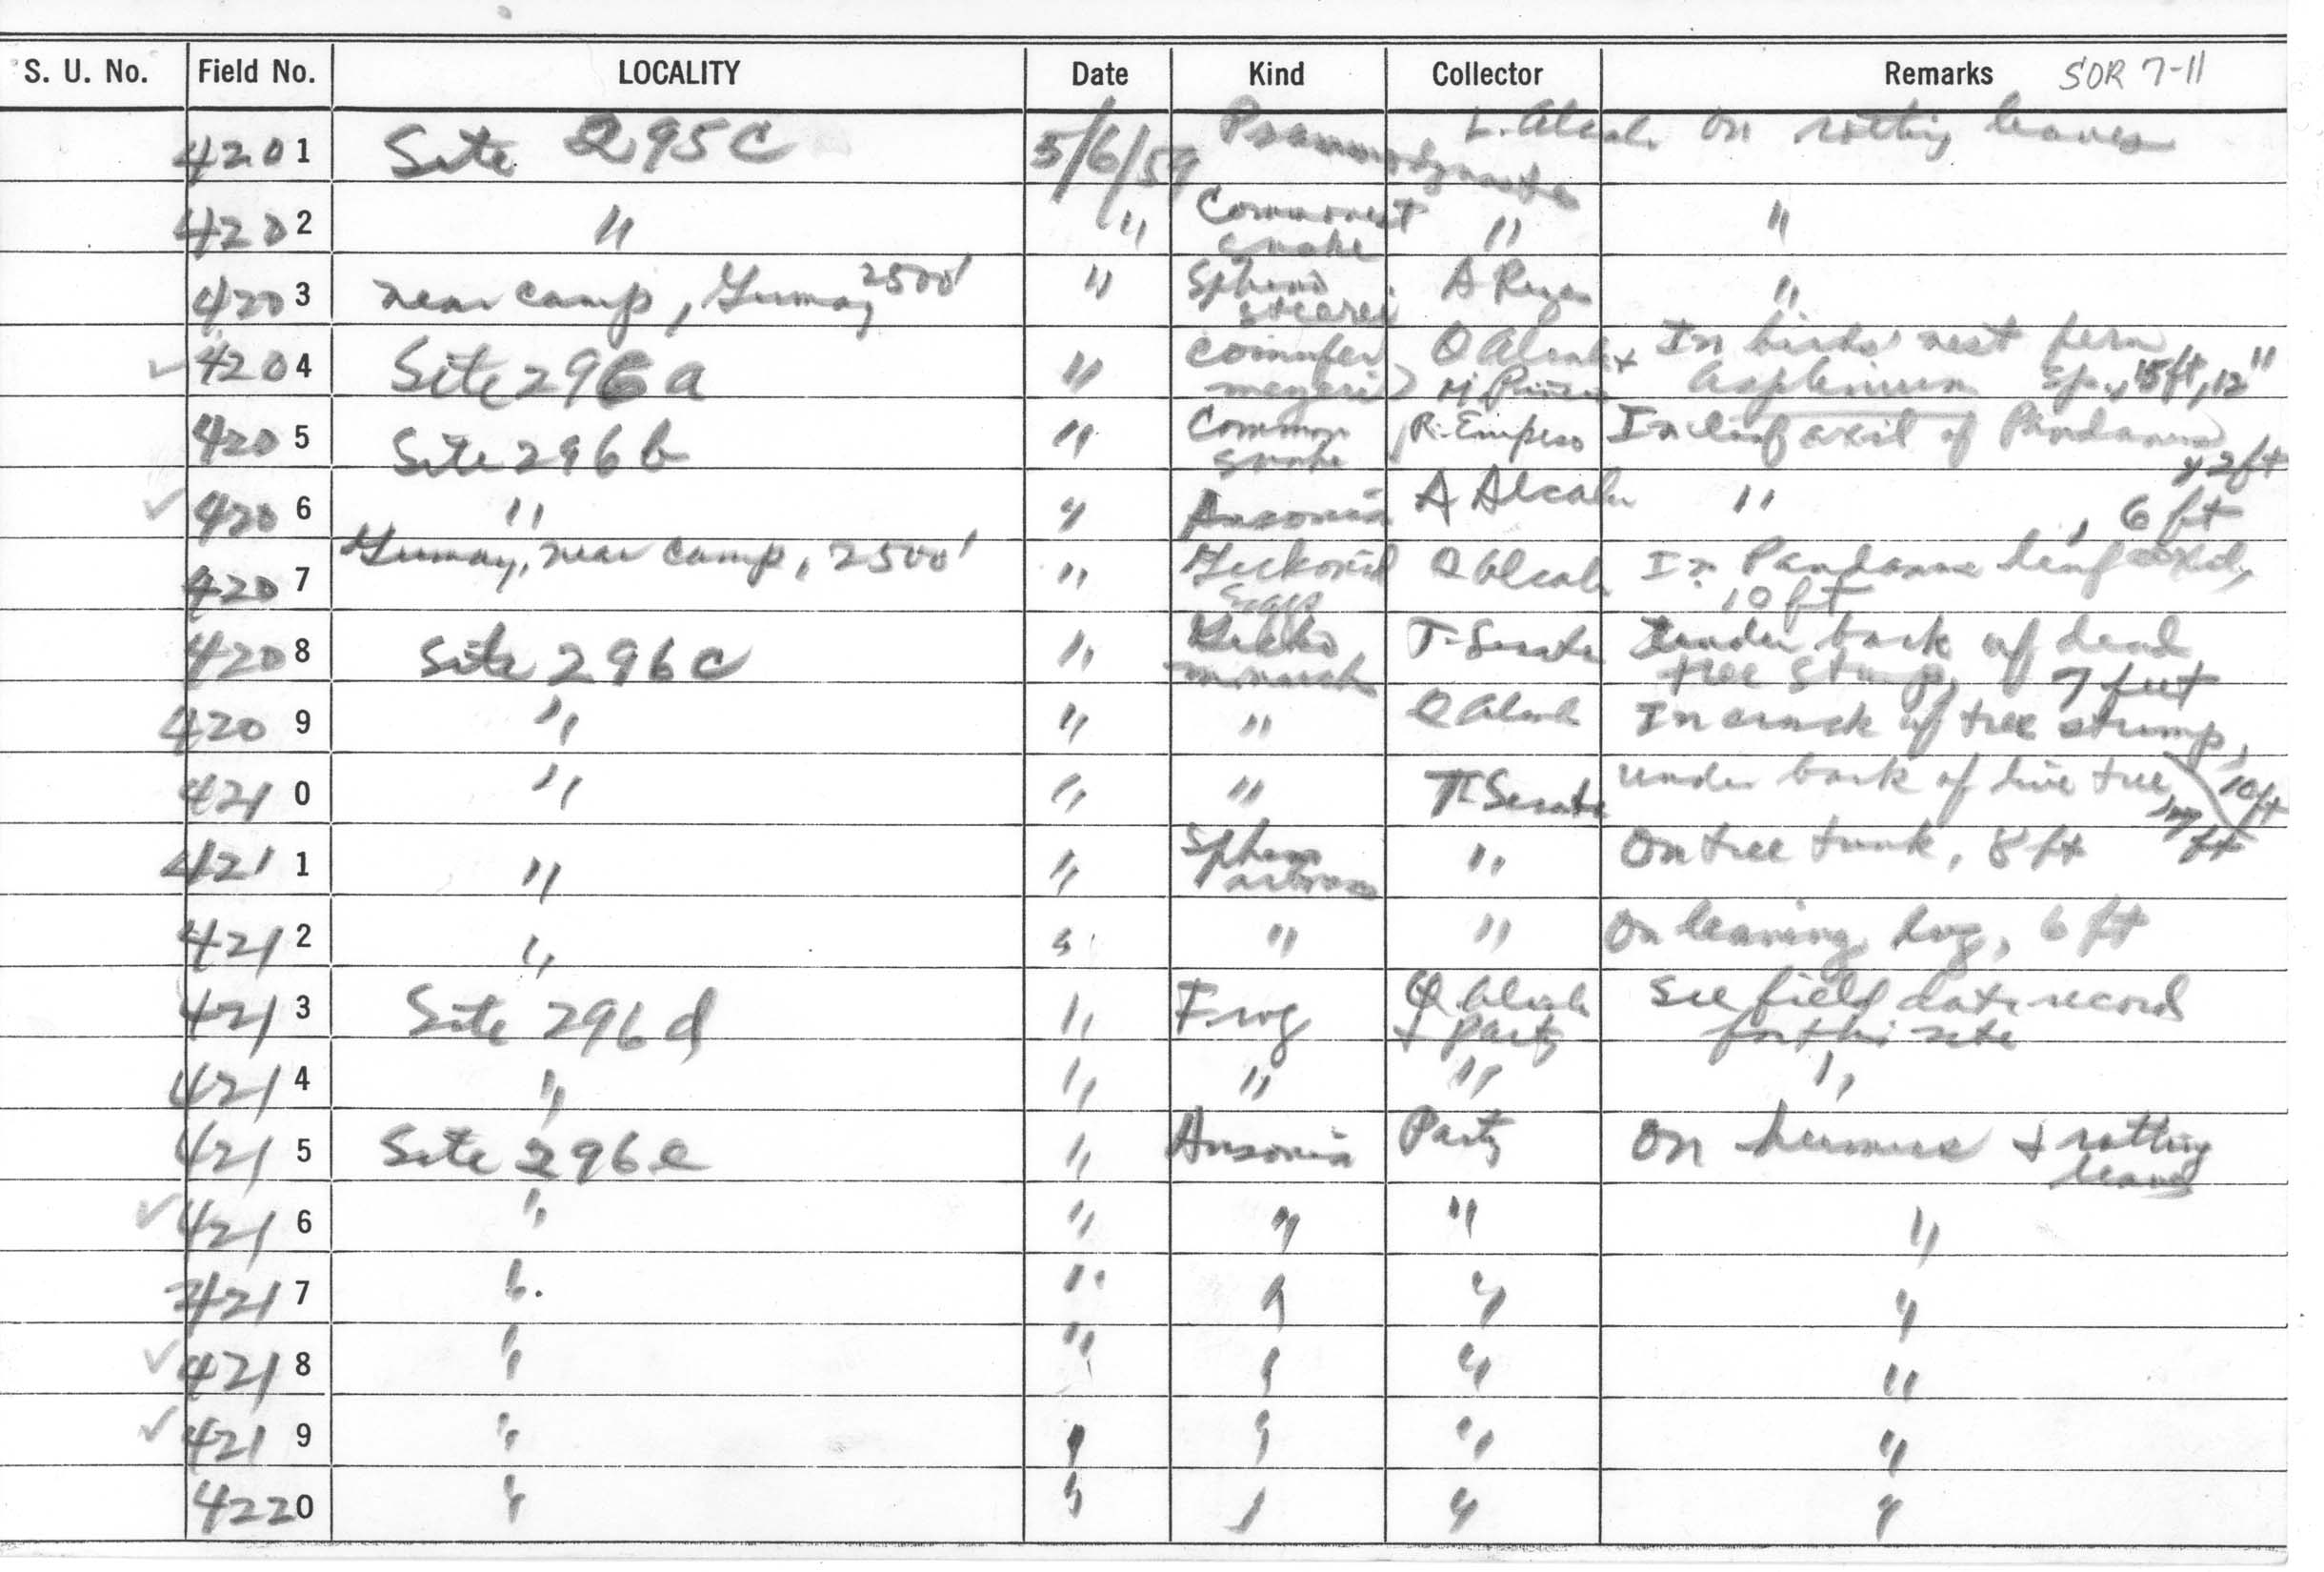 S. U. No. Field No. LOCALITY Date Kind Collector Remarks SOR 7-11
4201 Site 295c 5/6/59 Psammodynastes L. Alcala On rotting leaves
4202 " " Commonest snake " "
4203 near camp, Yumay 2500' " Spheno steerei A Reyes "
4204 Site 296a " Cornufer meyeri Q Alcala + In birds' nest fern Asplenium sp., 15 ft, 12"
4205 Site 296b " Common snake R. Empeso In leaf axil of Pandanus, 2 ft
4206 " " Ansonia A Alcala " , 6 ft
4207 Yumay, near camp, 2500' " Geckonid Eggs Q Alcala In Pandanus leaf axil, 10 ft
4208 Site 296c " Gekko monarch T. Serate Under bark of dead tree stump, 7 feet
4209 " " " Q Alcala In crack of tree stump, 10 ft
4210 " " " T Serate under bark of live tree, 7 ft
4211 " " Spheno " On tree trunk, 8 ft
4212 " " " " On leaning log, 6 ft
4213 Site 296d " Frog Q Alcala + party See field data record for this site
4214 " " " " "
4215 Site 296e " Ansonia Party On humus + rotting leaves
4216 " " " " "
4217 " " " " "
4218 " " " " "
4219 " " " " "
4220 " " " " "